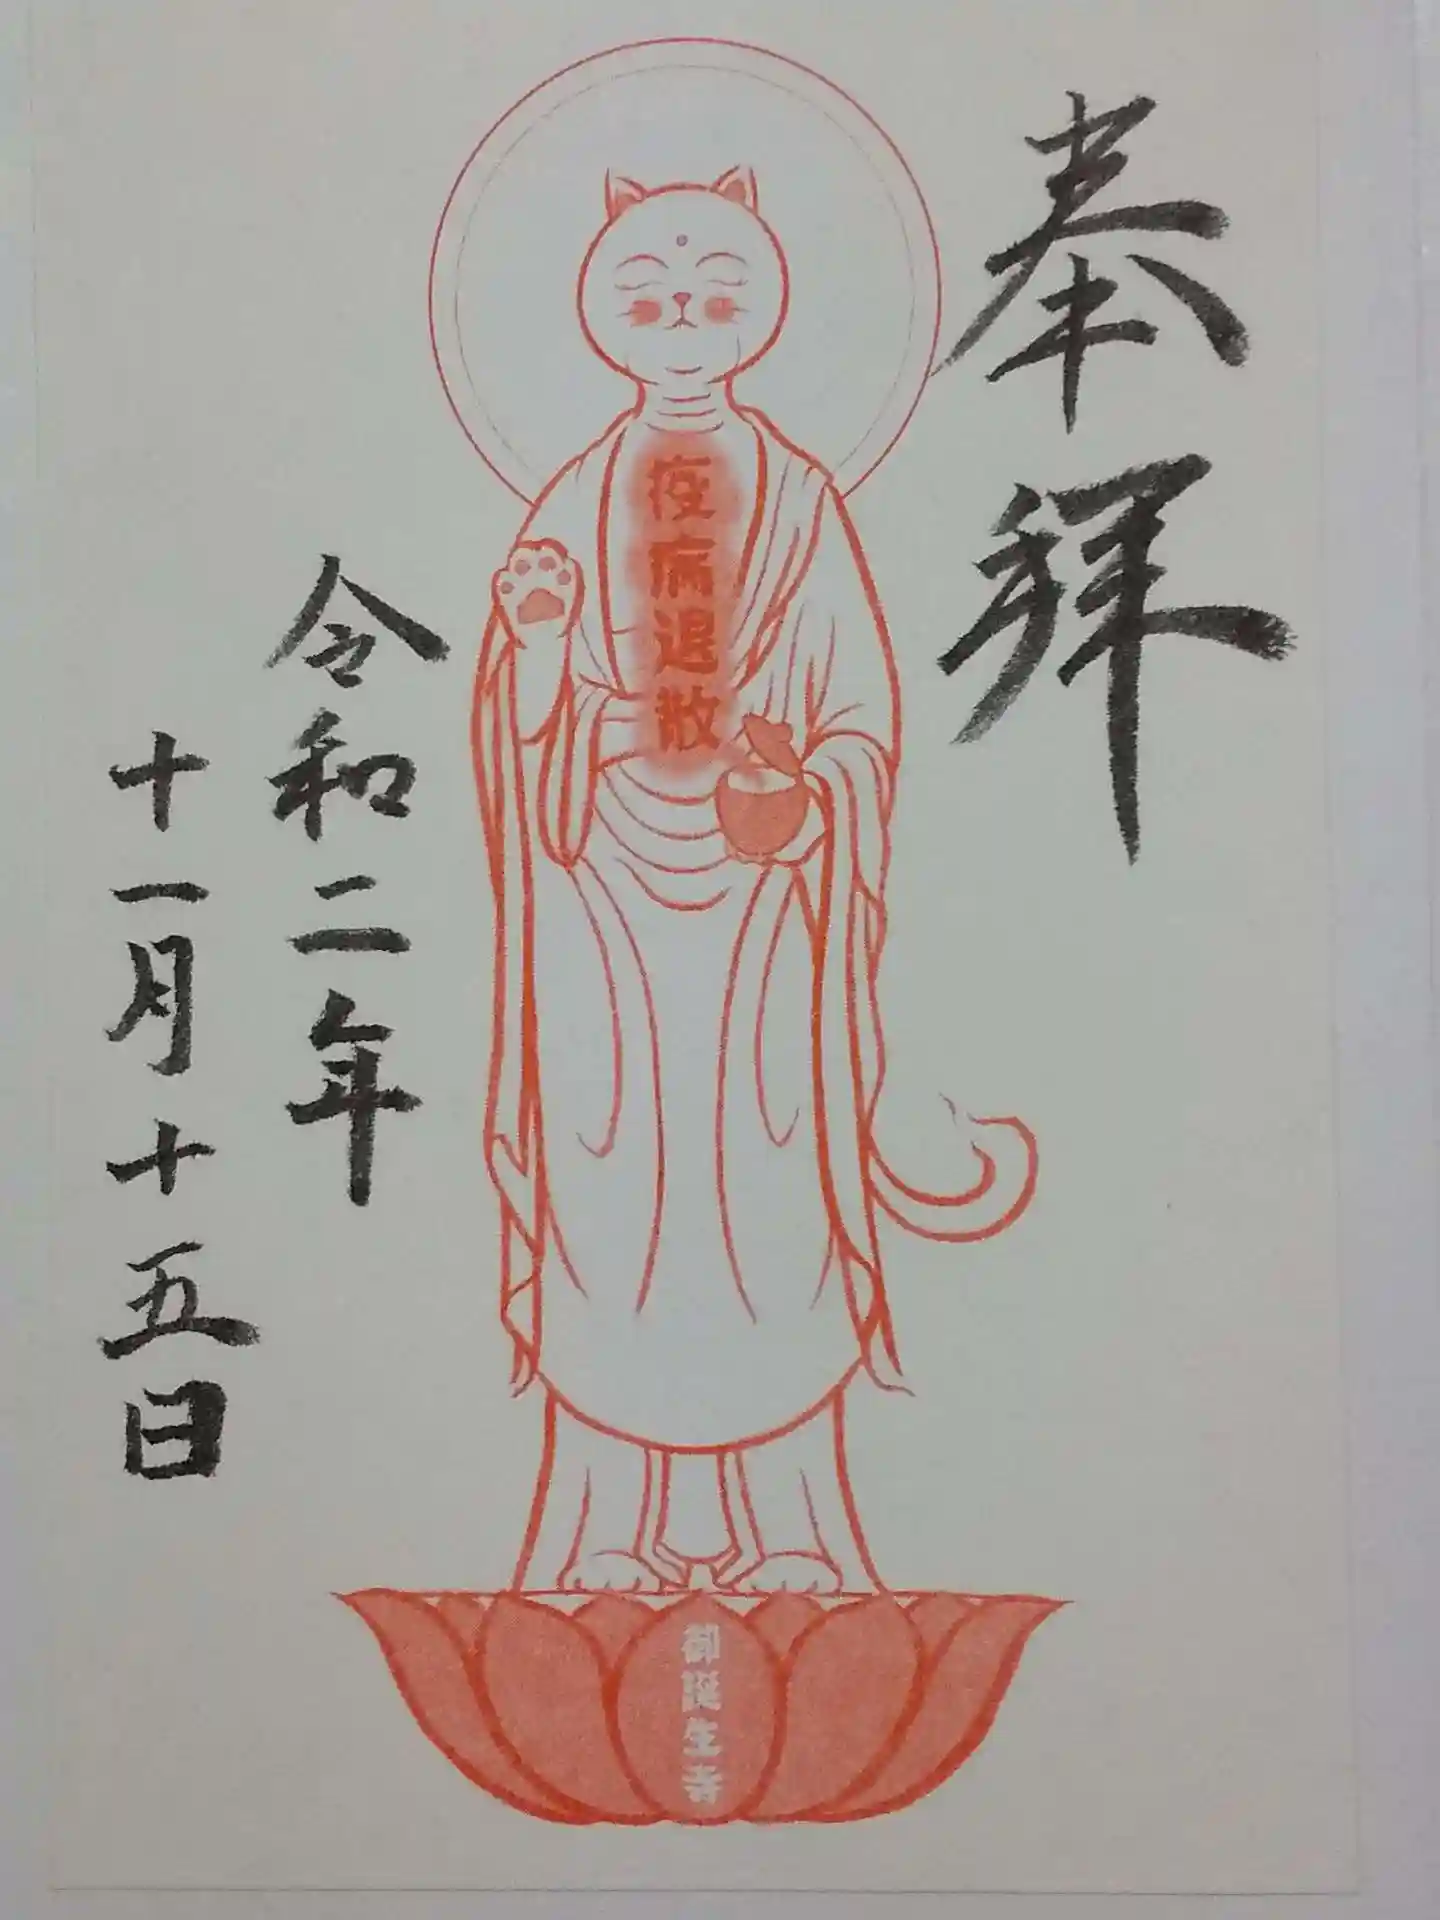 奉拝
疫病退散
令和二年
十一月十五日
御誕生寺